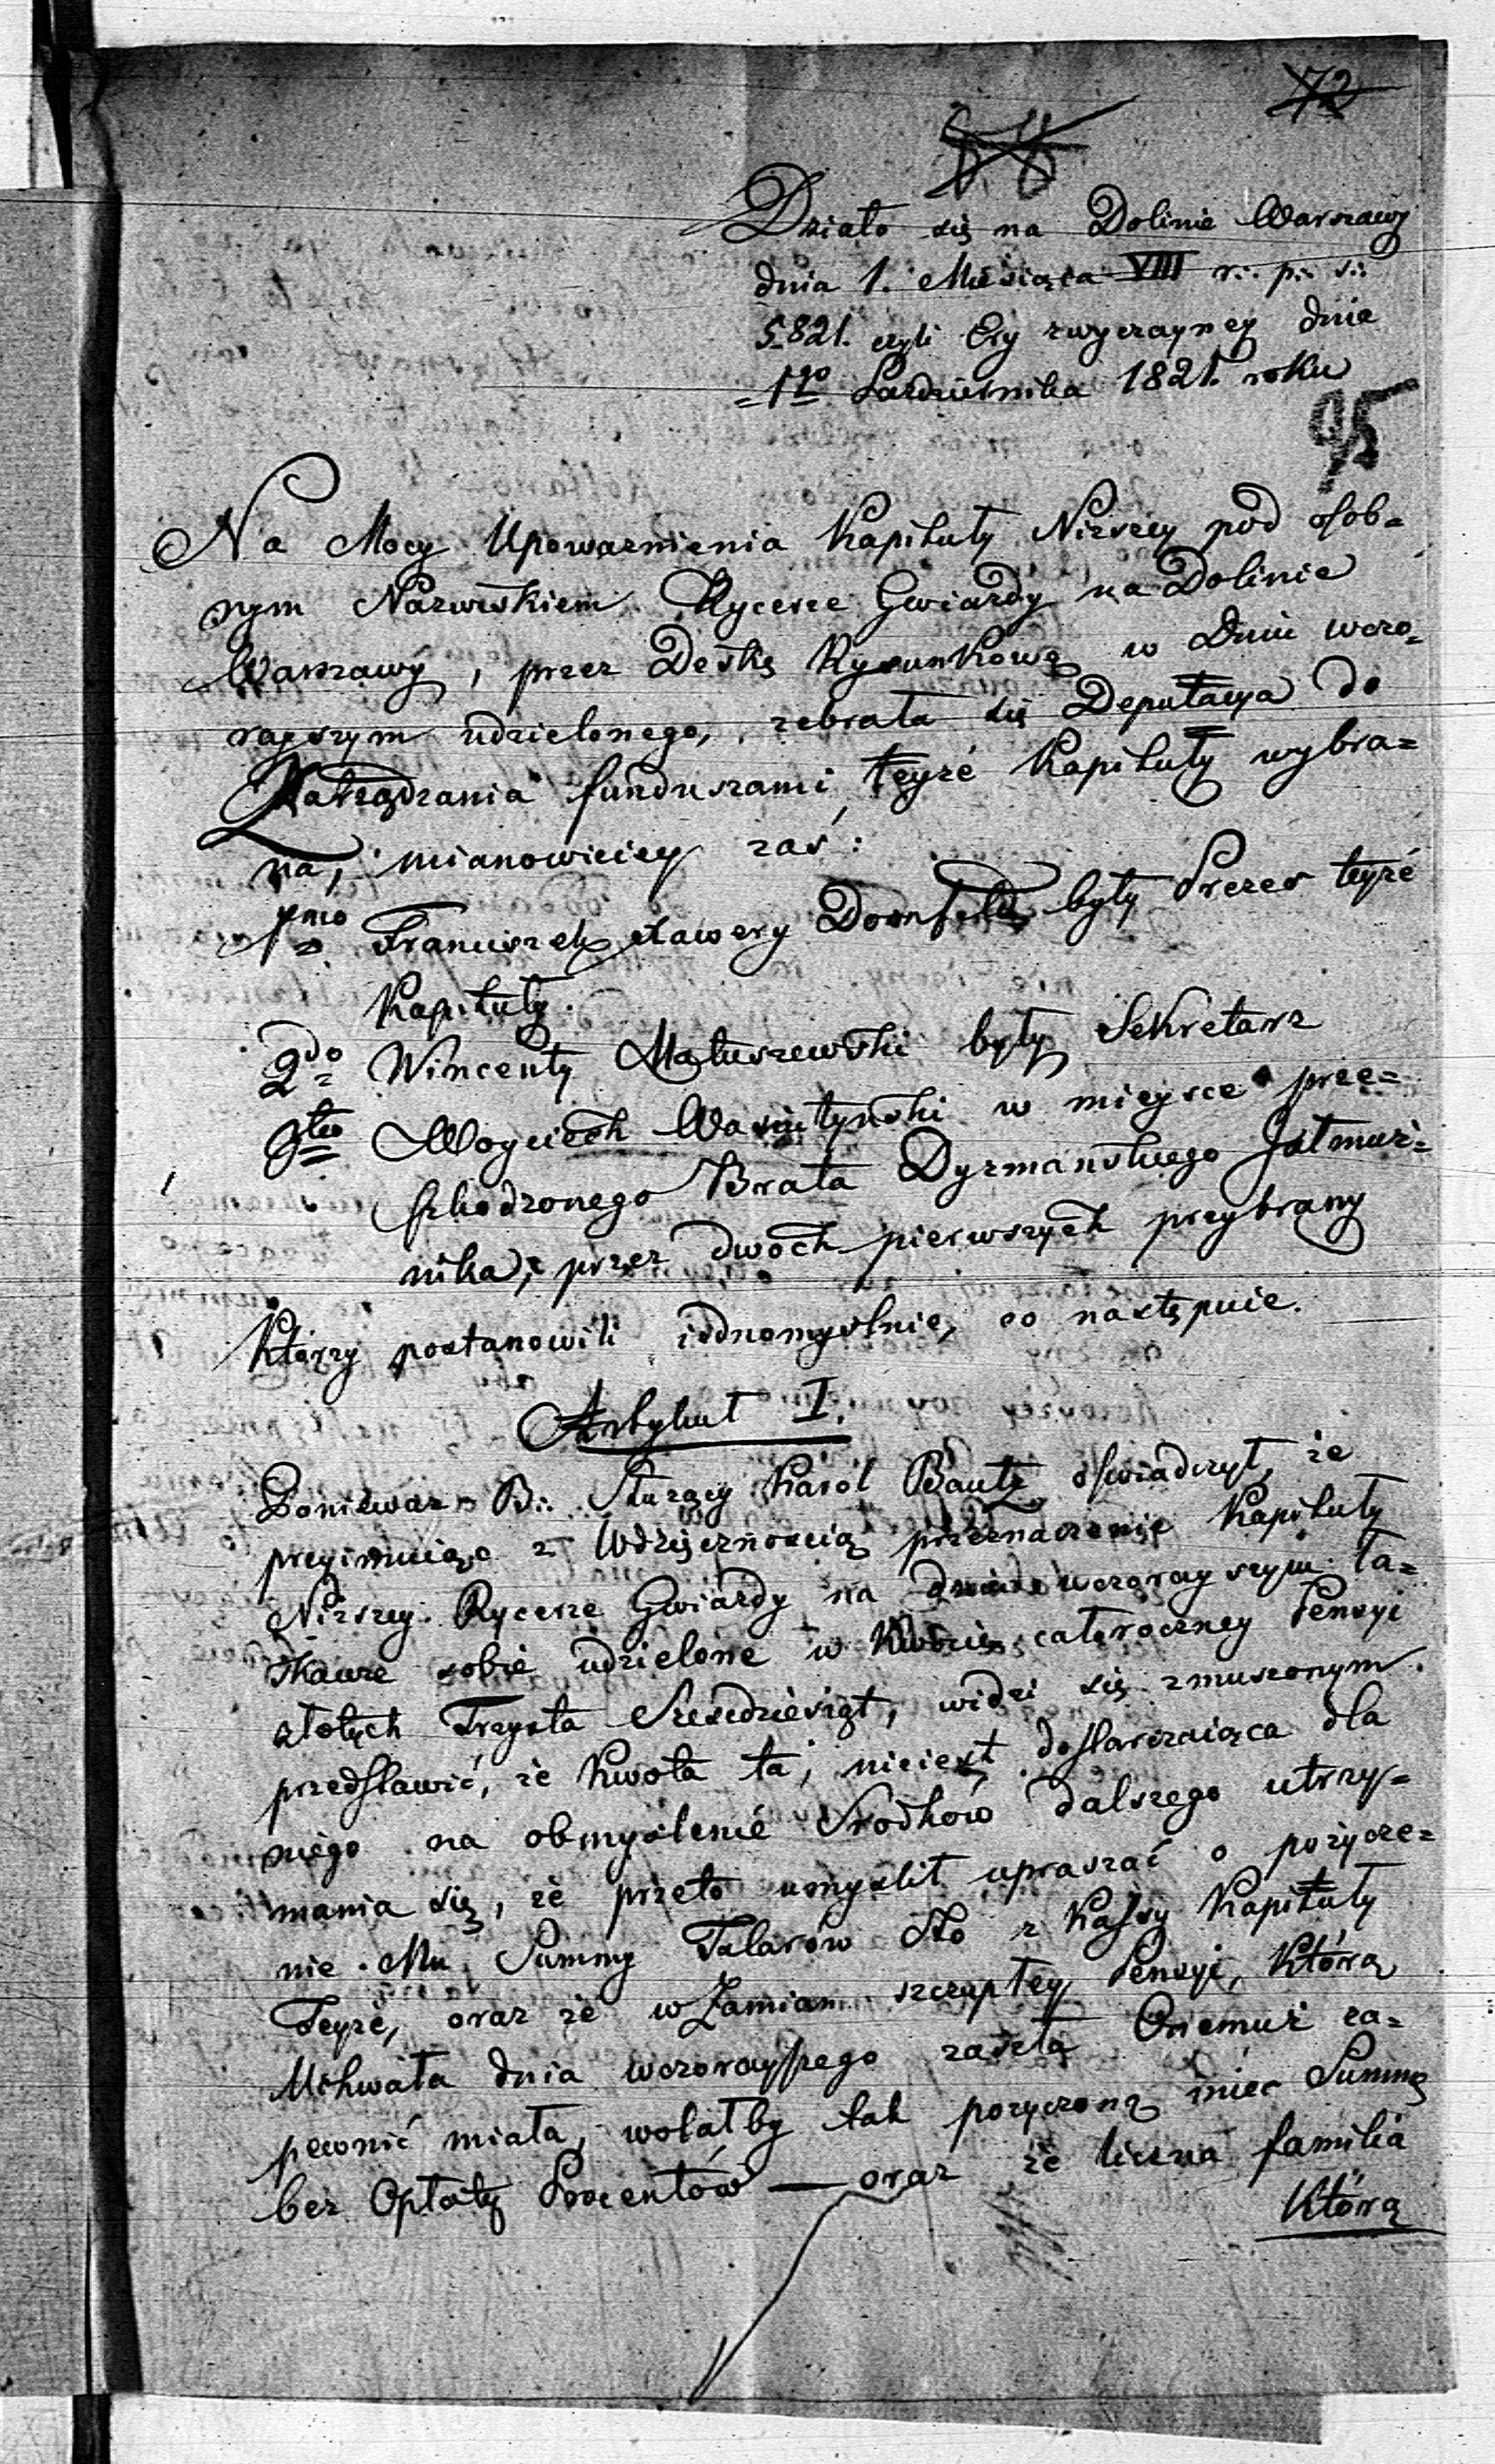 72
Działo się na Dolinie Warszawy
dnia 1. Miesiąca VIII r∴ p∴ ś∴
5821. czyli Ery zwyczayney dnia
1go Pazdziernika 1821. roku
95
Na Mocy Upoważnienia Kapituły Niższey pod osob=
nym Nazwiskiem Rycerze Gwiazdy na Dolinie
Warszawy, przez Deskę Rysunkową w Dniu wczo=
rayszym udzielonego, zebrała się Deputacya do
Zatrządzania funduszami teyże Kapituły wybra=
na, mianowiciey zaś:
1mo Franciszek Xawery Dornfeld były Prezes teyże
Kapituły.
2do Wincenty Matuszewski były Sekretarz
3tio Woyciech Wasiutyński w mieysce prze=
szkodzonego Brata Dyzmańskiego Jałmuż=
nika, przez dwóch pierwszych przybrany
Którzy postanowili iednomyslnie, co następuie.
Artykuł I.
Ponieważ B∴ Służący Karol Bautz oświadczył, że
przyimuiąc z Wdzięcznością przeznaczenie Kapituły
Niższey Rycerze Gwiazdy na dniu wczorayszym ła=
skawe sobie udzielone w Kwocie całoroczney Pensyi
złotych Trzysta Sześdziesiąt, widzi się zmuszonym
przedstawić, że Kwota ta, nieiest dostarczaiąca dla
niego na obmyslenié Srodków dalszego utrzy=
mania się, że przeto umyslił upraszać o pożycze=
nie Mu Summy Talarów Sto z Kassy Kapituły
Teyże, oraz że w Zamian szczupłey Pensyi, Którą
Uchwała dnia wczorayszego zaszła Onemuż za=
pewnić miała, wolałby tak pożyczoną mieć Summę
bez Opłaty Procentów — oraz że liczna familia
Którą